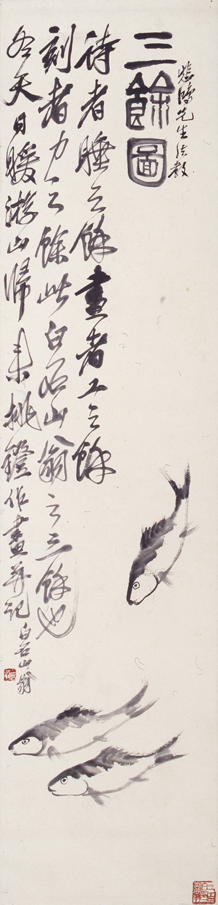 三餘圖
悲鴻先生法教
詩者睡之餘畫者工之餘
刻者力之餘此白石山翁之三餘也
冬天日暖游山歸來挑鐙作畫并記白石山翁